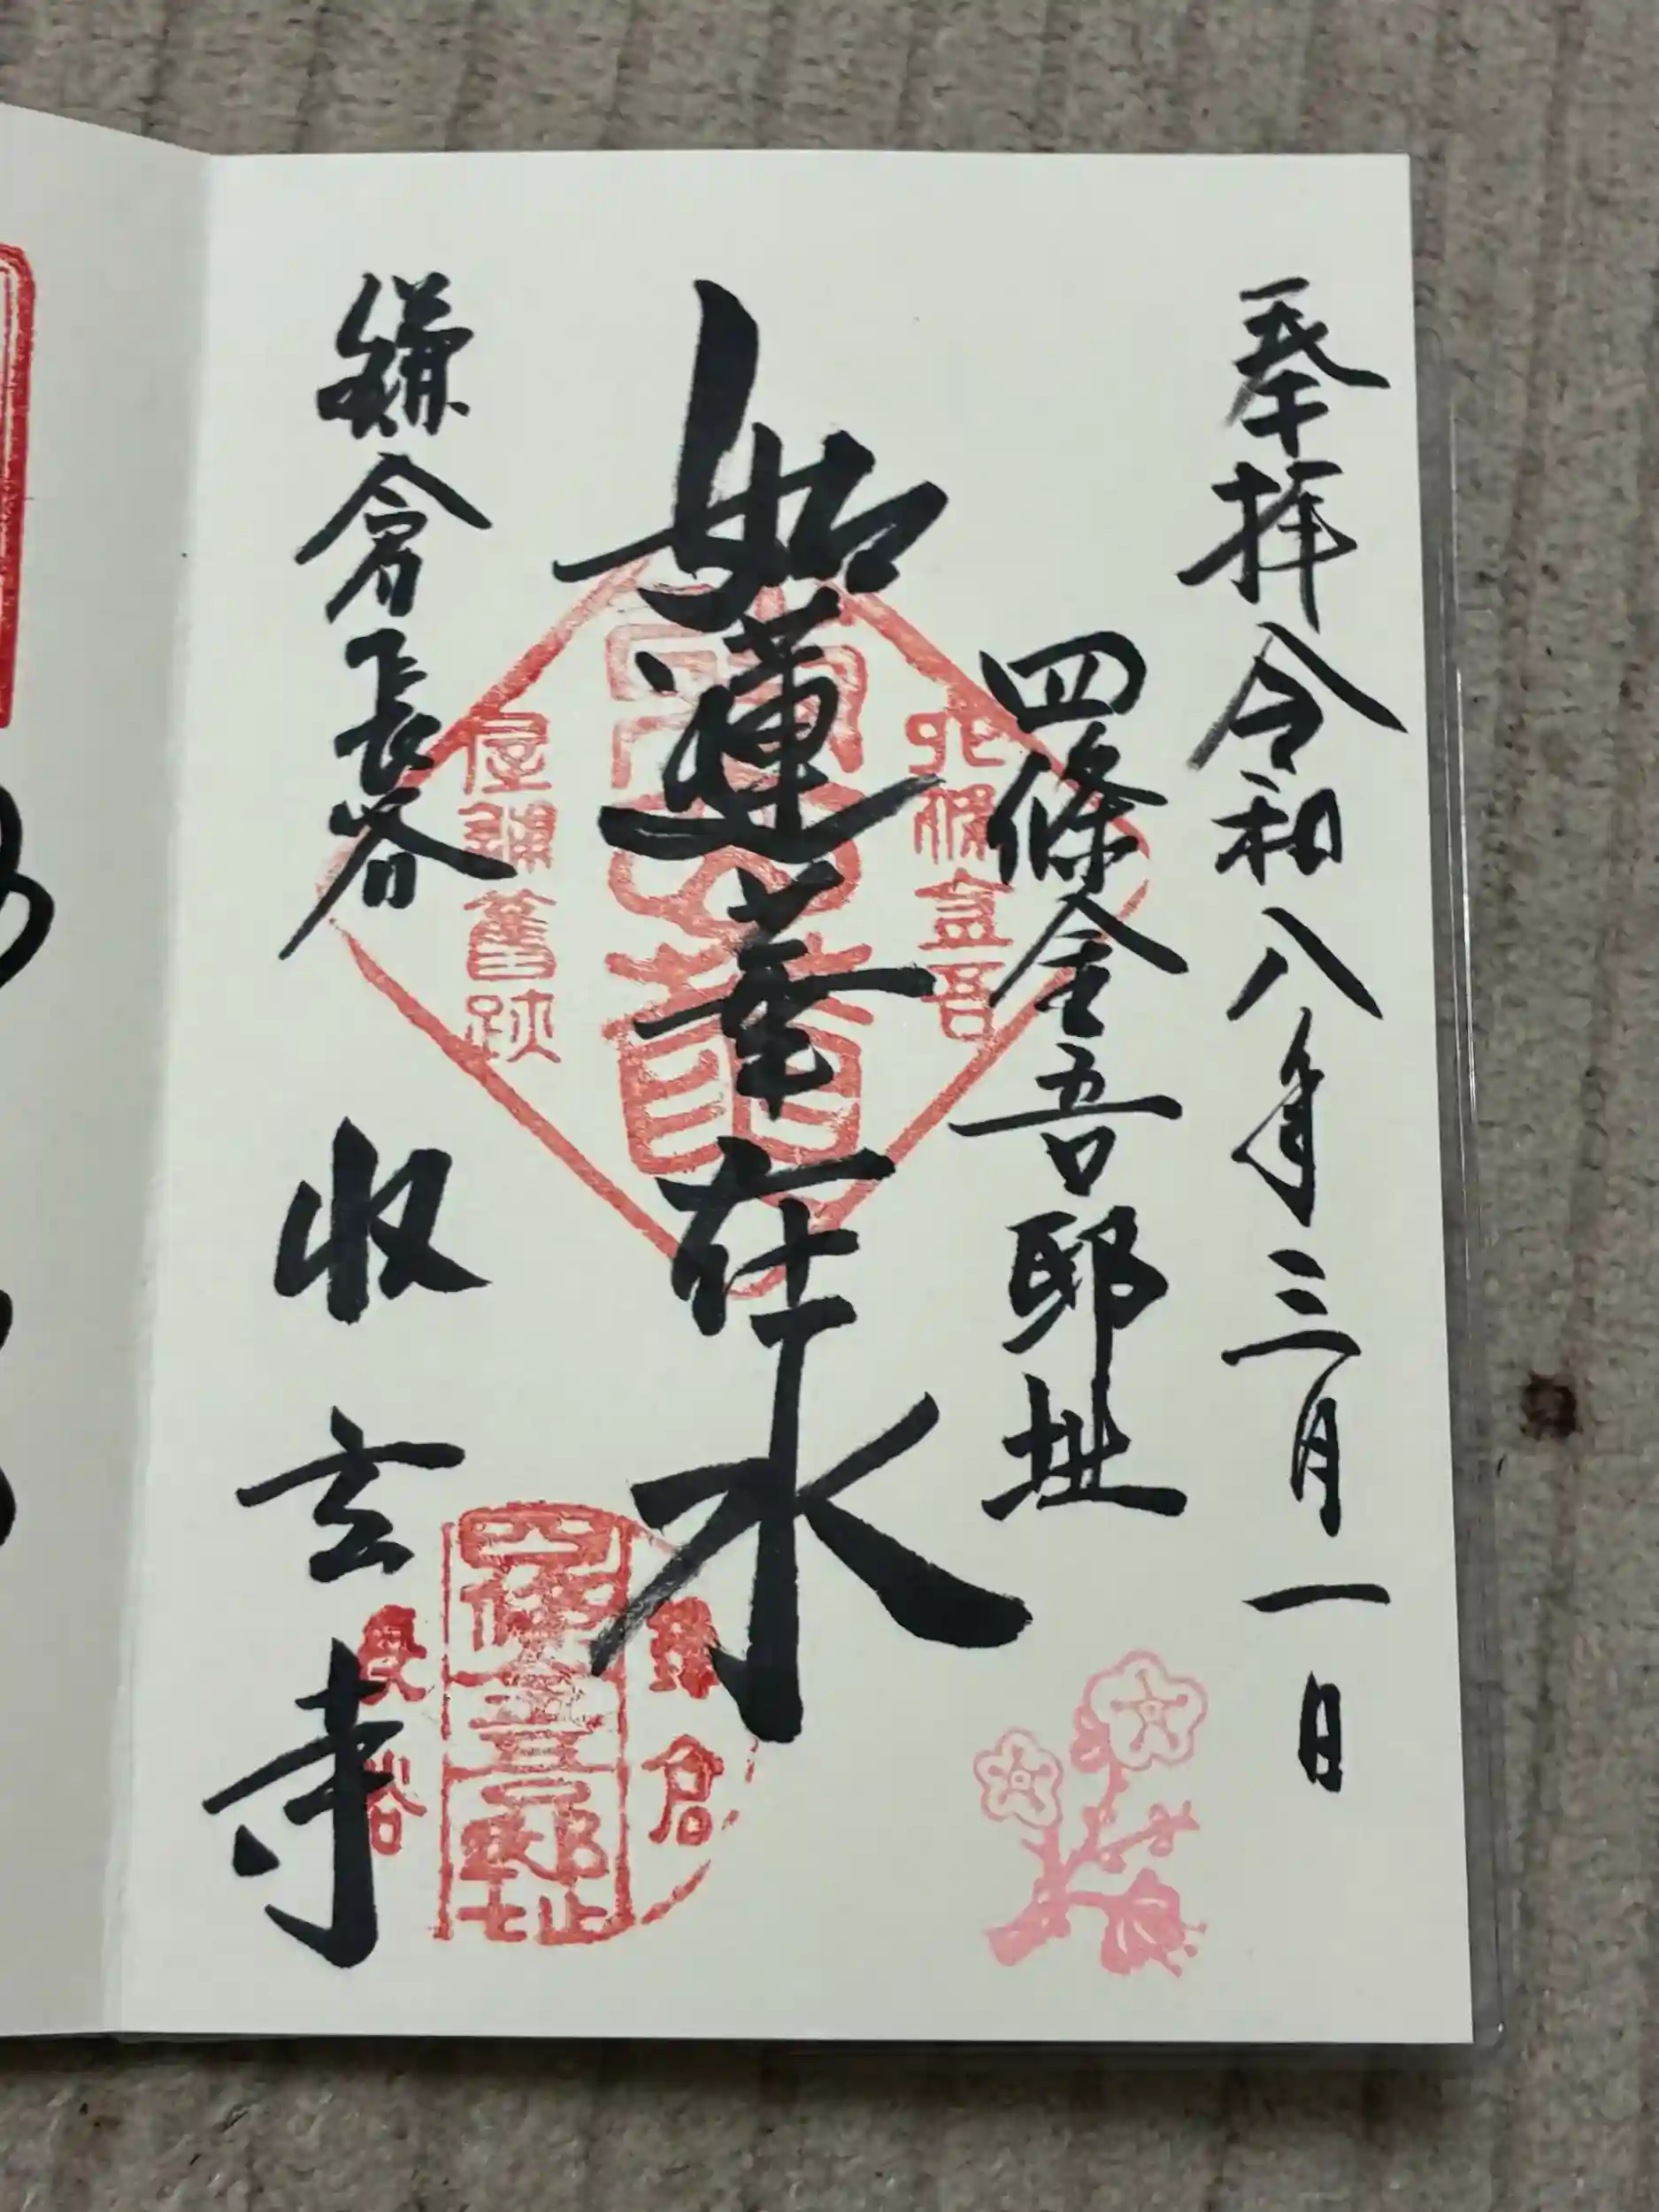 奉拝 令和八年三月一日
四條金吾邸址
如蓮華在水
鎌倉長谷
収玄寺
屋鋪旧跡
四條金吾邸址
鎌倉
長谷